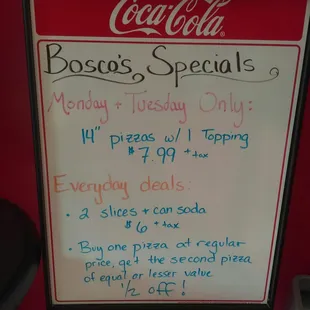 Coca-Cola
Bosco's Specials
Monday + Tuesday Only:
14" pizzas w/ 1 Topping
$7.99 + tax
Everyday deals:
• 2 slices + can soda
$6 + tax
• Buy one pizza at regular
price, get the second pizza
of equal or lesser value
1/2 off!